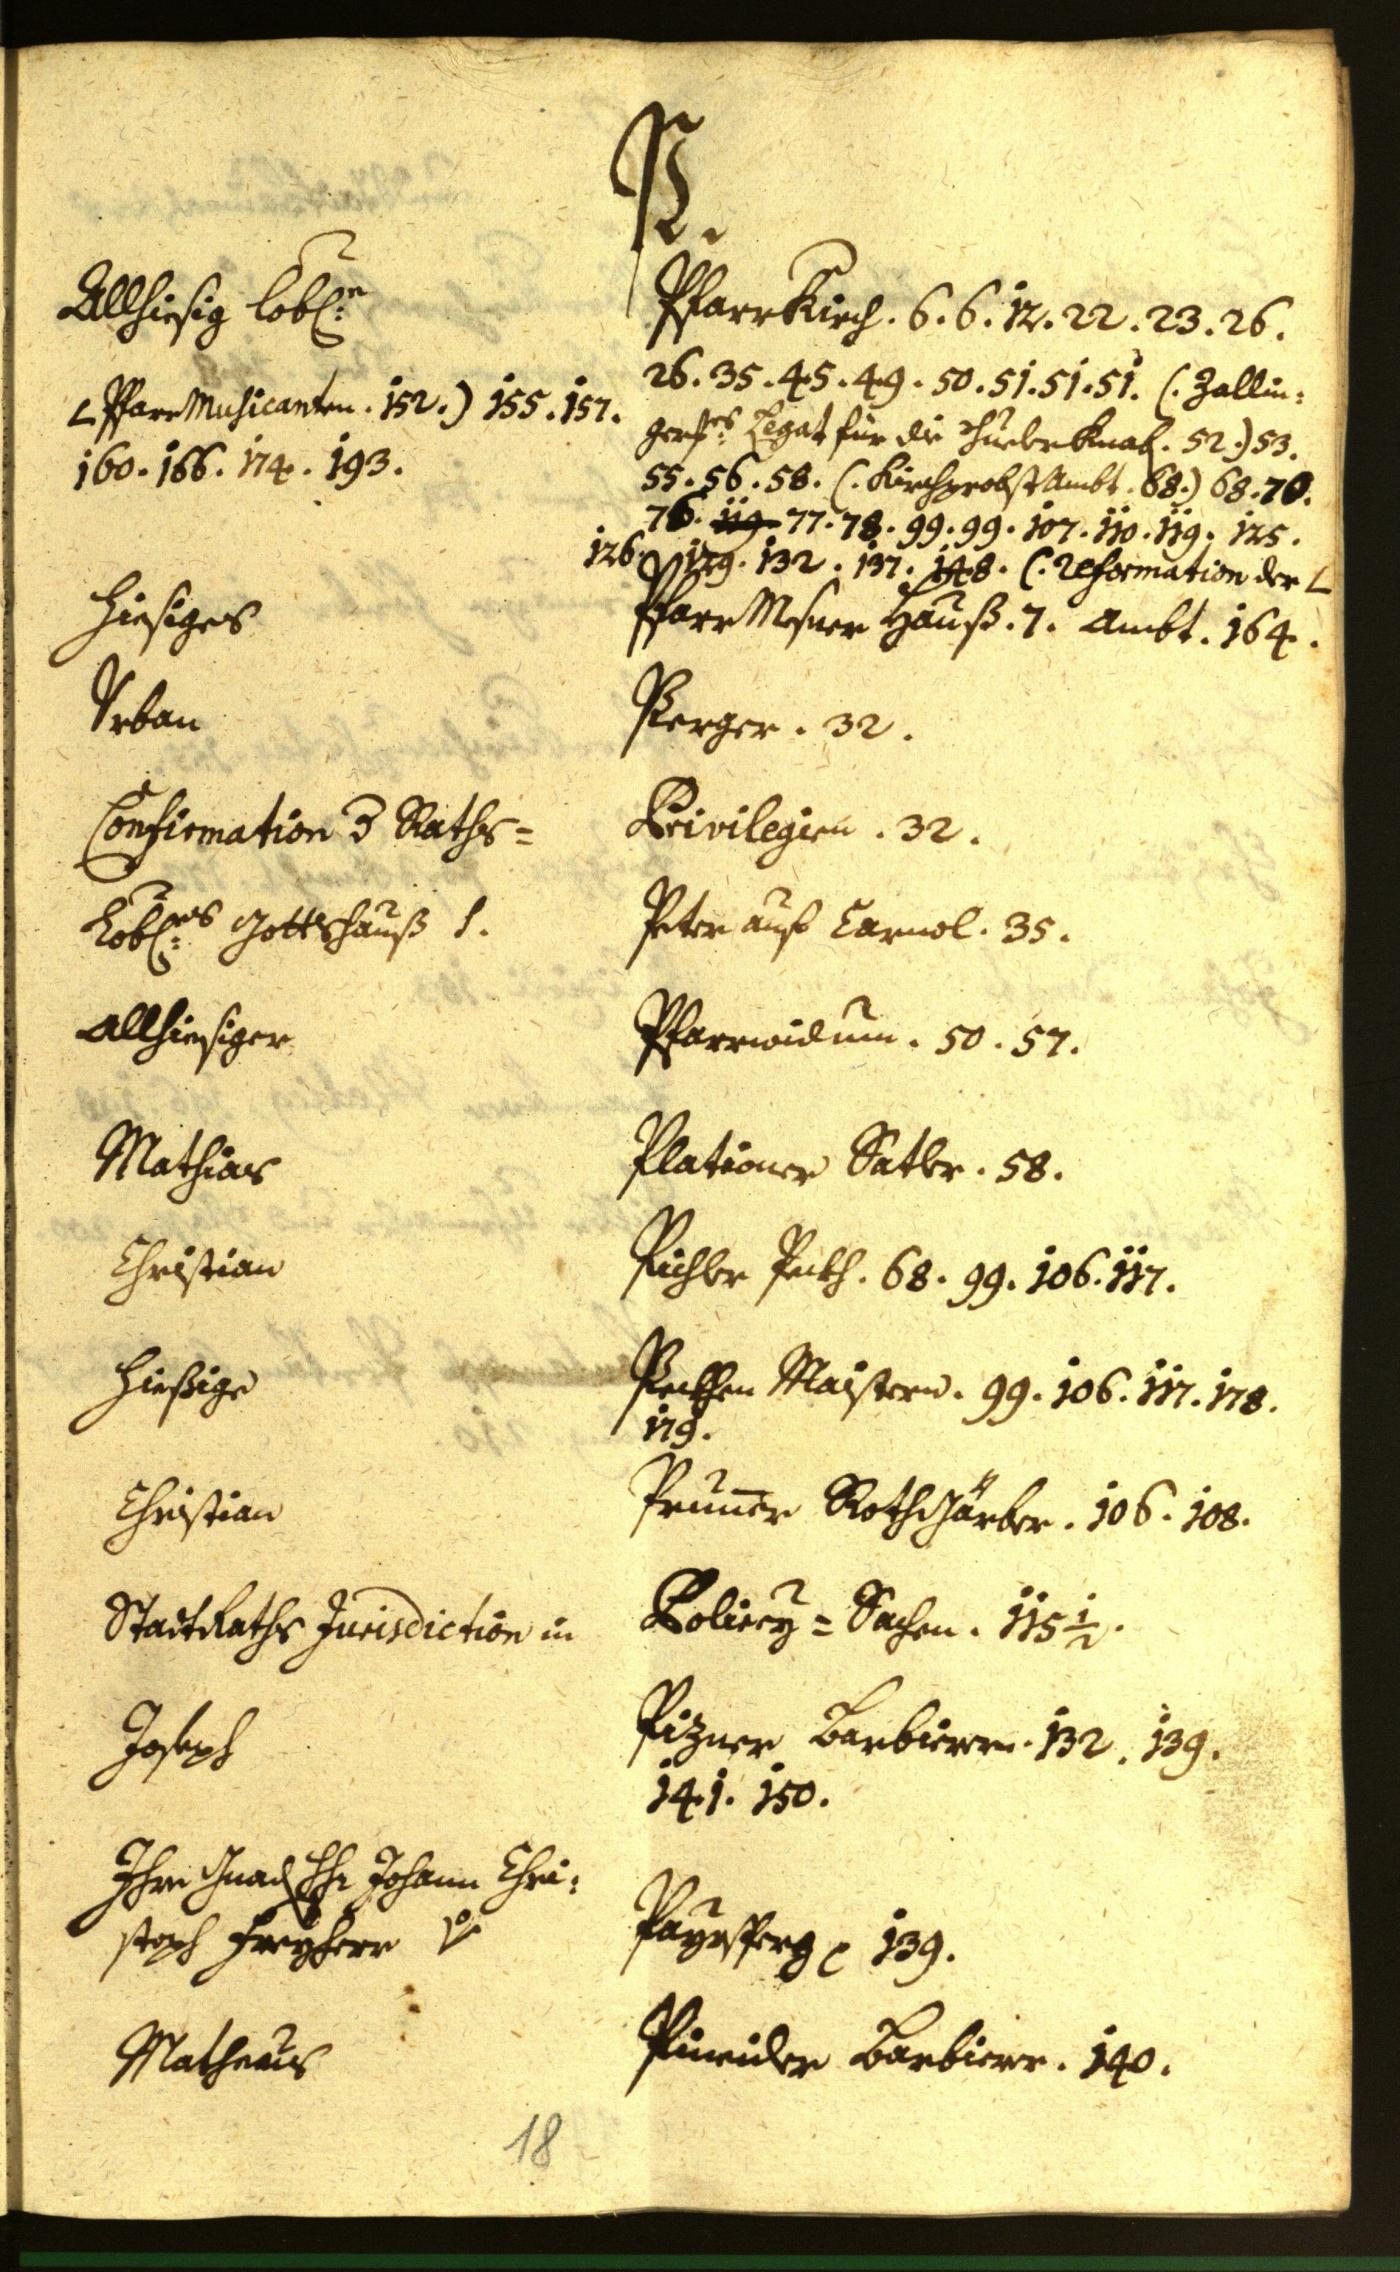 P.
Allhiesig lobl:n PfarrKirch. 6. 6. 12. 22. 23. 26.
26. 35. 45. 49. 50. 51. 51. 51. (. Zallin:
gers:es Legat für die Knab. 52.) 53.
55. 56. 58. (. Kirchprobst Ambt. 68.) 68. 70.
76. 119. 77. 78. 99. 99. 107. 110. 119. 125.
126. 129. 132. 137. 148. (. Reformation der L
L PfarrMusicanten. 152.) 155. 157.
160. 166. 174. 193.
Hiesiges PfarrMesner Hauß. 7. Ambt. 164.
Urban Perger. 32.
Confirmation Raths= Privilegien. 32.
Lobl:es Gottshauß S. Peter auf Carnol. 35.
Allhiesiger Pfarrwidum. 50. 57.
Mathias Plationer Satler. 58.
Christian Pichler Peckh. 68. 99. 106. 117.
Hießige Peckhen Maistern. 99. 106. 117. 178.
179.
Christian Pruner RothGärber. 106. 108.
StadtRaths Jurisdiction in Policey= Sachen. 115 1/2.
Joseph Pizner Barbierer. 132. 139.
141. 150.
Ihre Gnad Hr Johann Chri:
stoph Freyherr v Payrsperg 139.
Matheus Pineider Barbierer. 140.
18